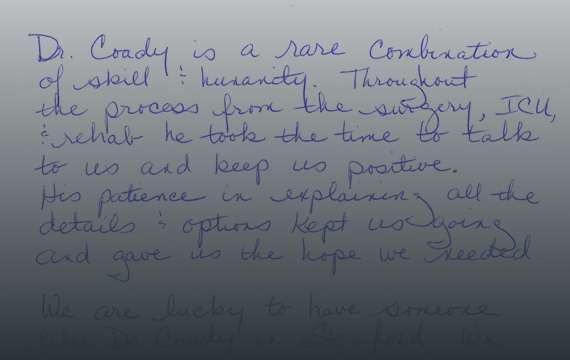 Dr. Coady is a rare combination
of skill & humanity. Throughout
the process from the surgery, ICU,
& rehab he took the time to talk
to us and keep us positive.
His patience in explaining all the
details & options kept us going
and gave us the hope we needed.
We are lucky to have someone
like Dr. Coady in Stanford. We